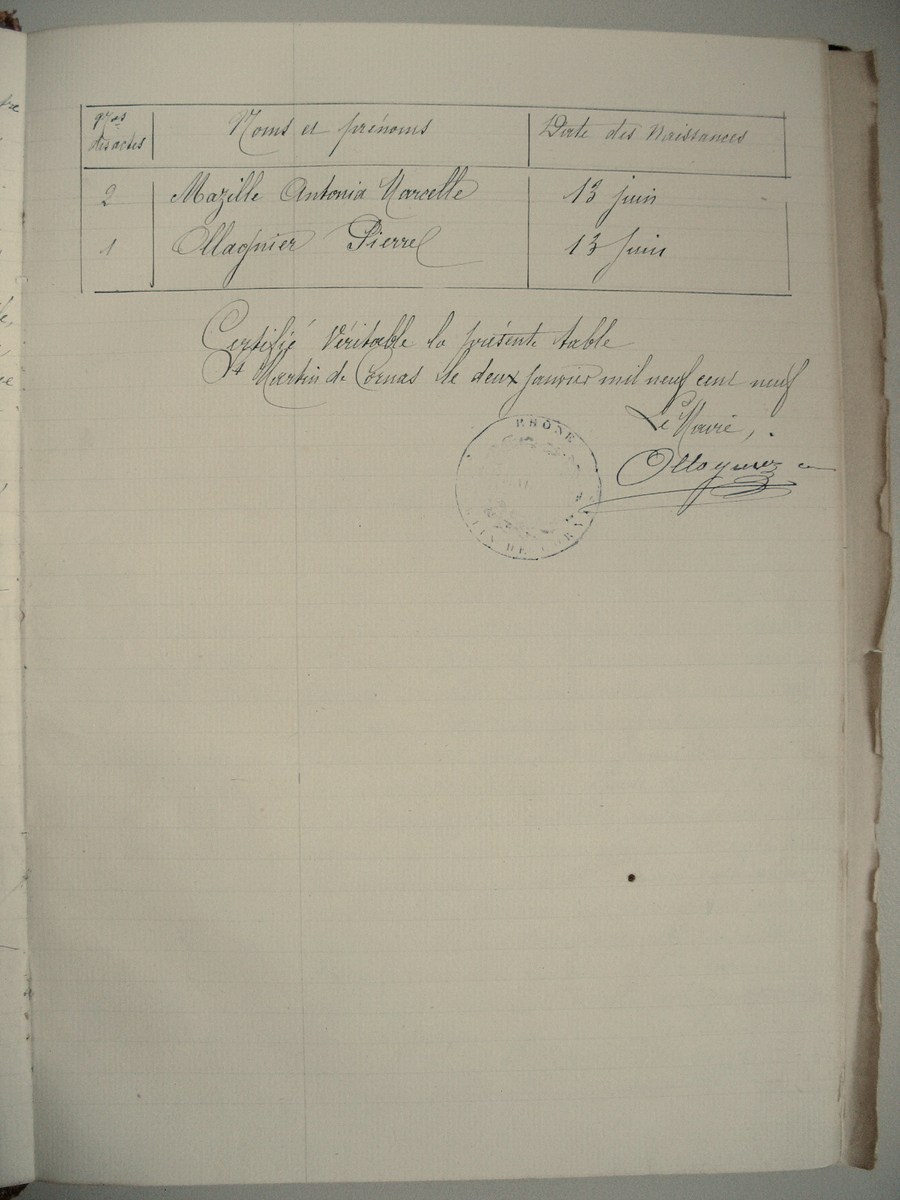 Nos des actes Noms et prénoms Date des Naissances
2 Mazille Antonia Marcelle 13 juin
1 Ollagnier Pierre 13 juin
Certifié Véritable la présente table
St Martin de Cornas le deux janvier mil neuf cent neuf
Le Maire,
Ollagnier
RHÔNE